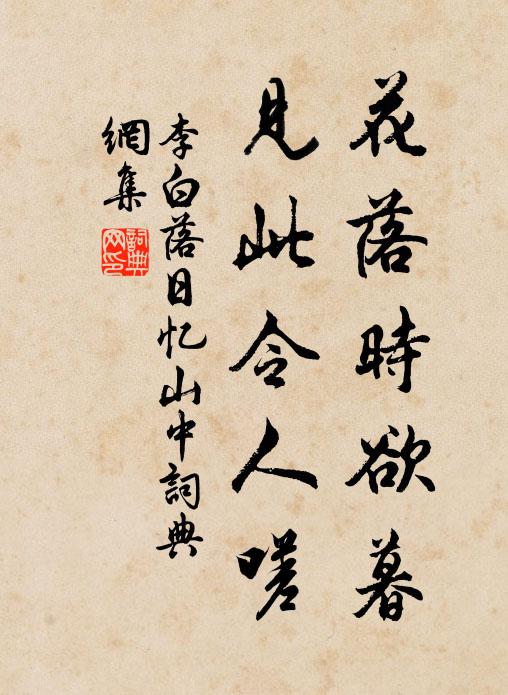 花落時欲暮
見此令人嗟
李白落日忆山中詞典
網集
詞典
网印